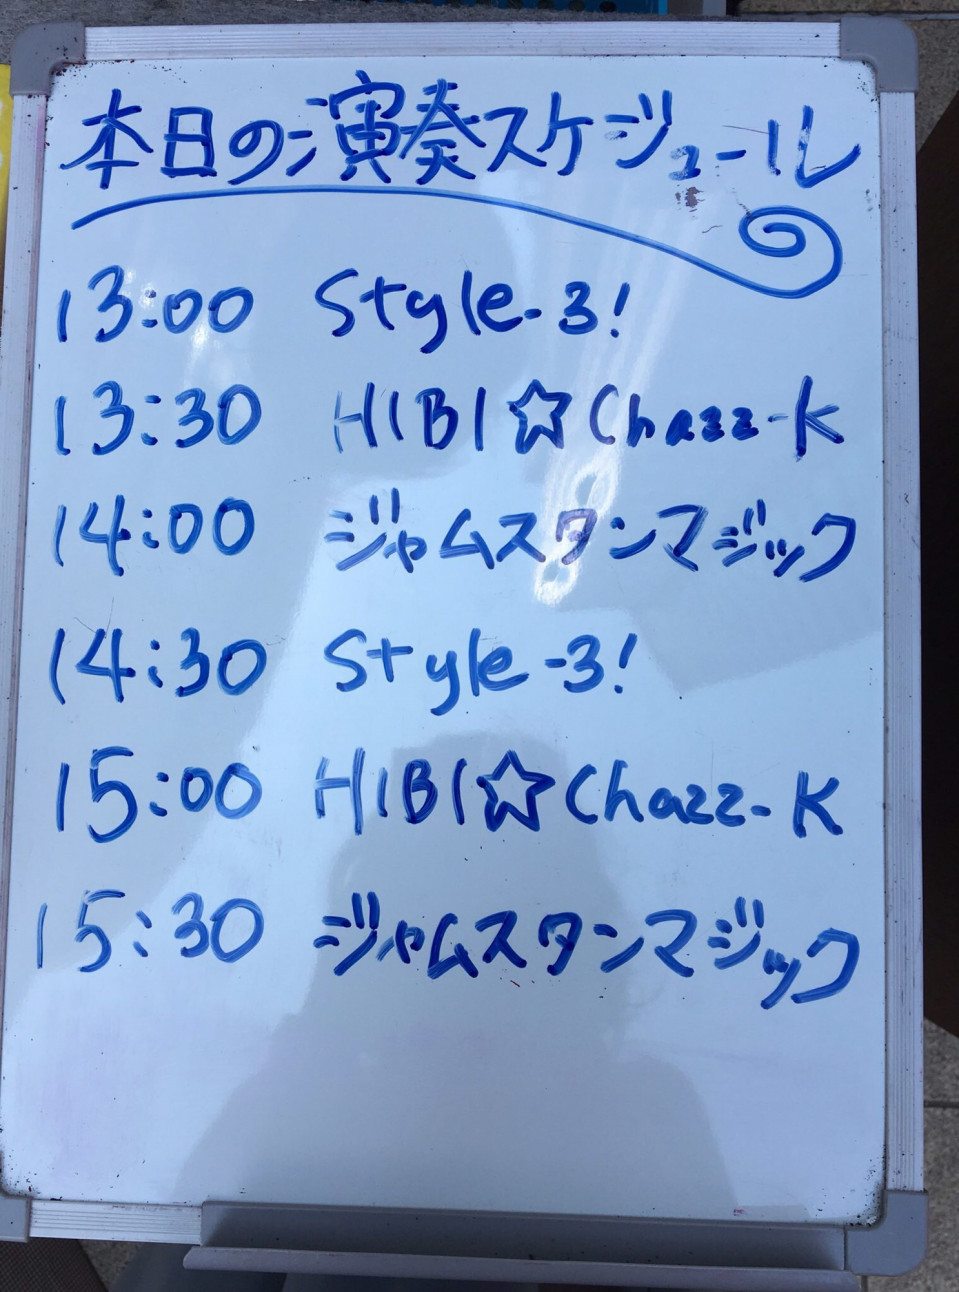 本日の演奏スケジュール
13:00 Style-3!
13:30 HIBI☆Chazz-K
14:00 ジャムスタンマジック
14:30 Style-3!
15:00 HIBI☆Chazz-K
15:30 ジャムスタンマジック